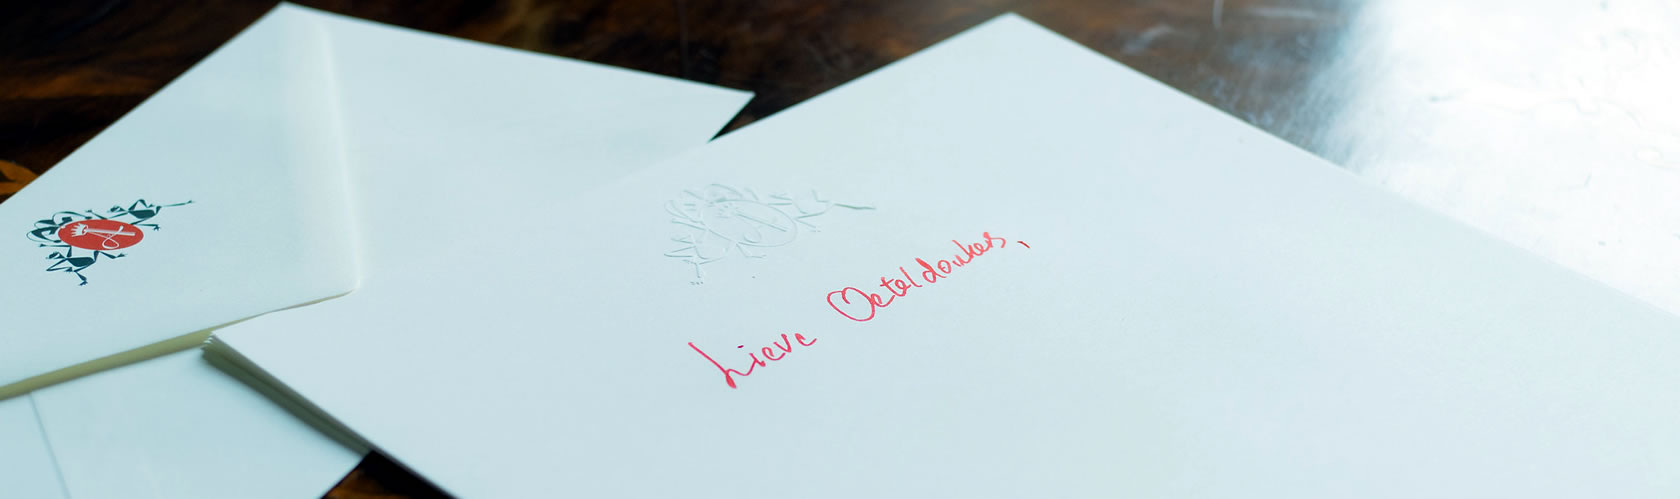 Lieve Oeteldonkers,